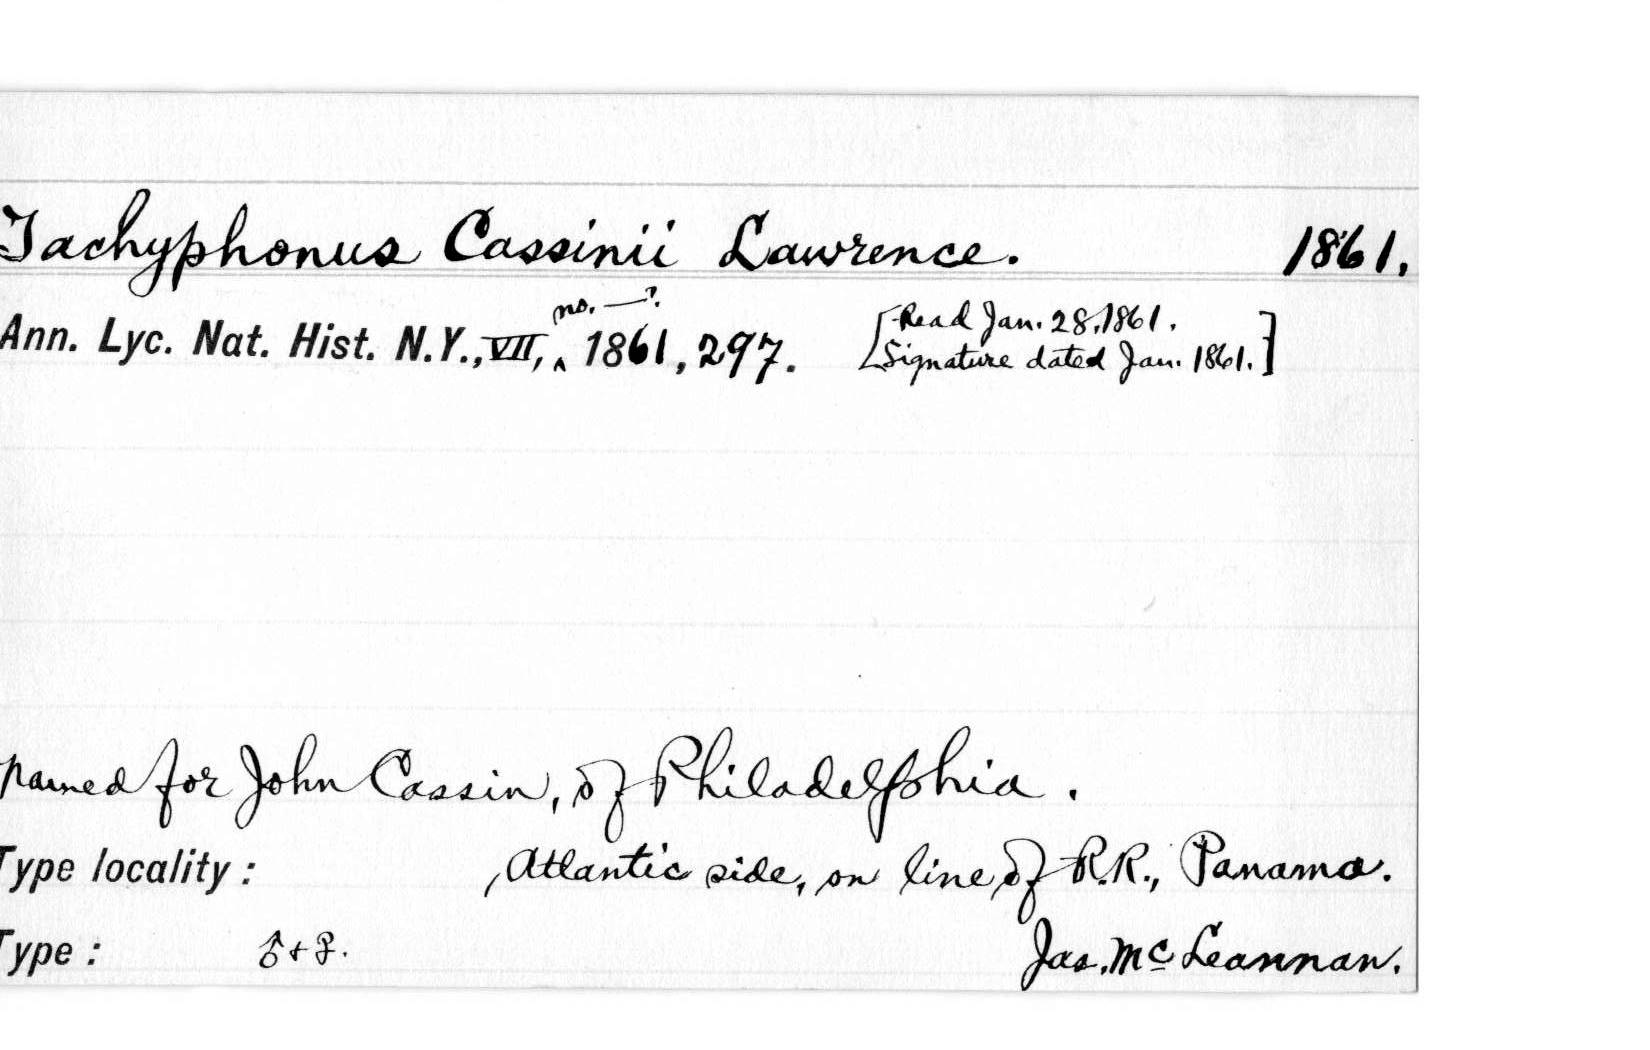 Tachyphonus Cassinii Lawrence. 1861.
no. —?.
Ann. Lyc. Nat. Hist. N.Y., VII, ‸ 1861, 297. [Read Jan. 28, 1861.
Signature dated Jan. 1861.]
Named for John Cassin, of Philadelphia.
Type locality: Atlantic side, on line of R.R., Panama.
Type: ♂ + ♀. Jas. McLeannan.